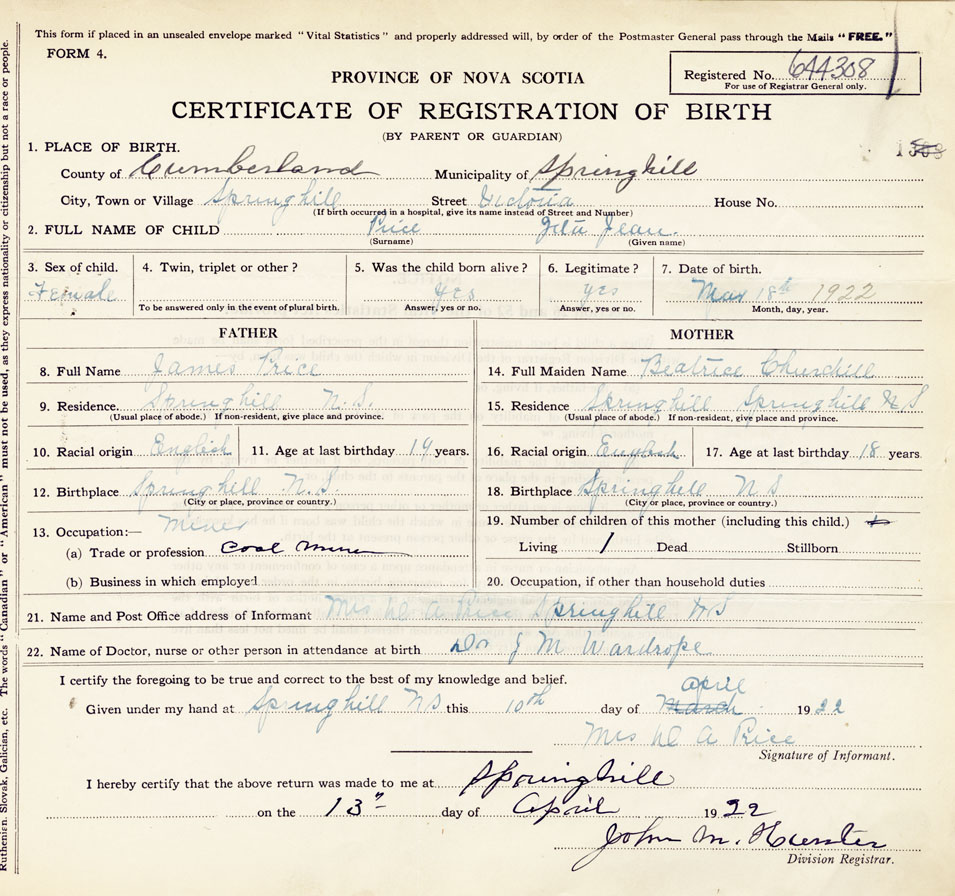 This form if placed in an unsealed envelope marked "Vital Statistics" and properly addressed will, by order of the Postmaster General pass through the Mails "FREE."
FORM 4.
PROVINCE OF NOVA SCOTIA
Registered No. 644308
For use of Registrar General only.
CERTIFICATE OF REGISTRATION OF BIRTH
(BY PARENT OR GUARDIAN)
1. PLACE OF BIRTH.
County of Cumberland Municipality of Springhill
City, Town or Village Springhill Street Victoria House No.
(If birth occurred in a hospital, give its name instead of Street and Number)
2. FULL NAME OF CHILD Price Zita Jean.
(Surname) (Given name)
3. Sex of child. 4. Twin, triplet or other? 5. Was the child born alive? 6. Legitimate? 7. Date of birth.
Female Yes yes 18th 1922
To be answered only in the event of plural birth. Answer, yes or no. Answer, yes or no. Month, day, year.
FATHER MOTHER
8. Full Name James Price 14. Full Maiden Name Beatrice Churchill
9. Residence. Springhill N.S. 15. Residence Springhill Springhill N S
(Usual place of abode.) If non-resident, give place and province. (Usual place of abode.) If non-resident, give place and province.
10. Racial origin English 11. Age at last birthday 19 years. 16. Racial origin English 17. Age at last birthday 18 years
12. Birthplace Springhill N.S. 18. Birthplace Springhill N S
(City or place, province or country.) (City or place, province or country.)
13. Occupation:— Miner 19. Number of children of this mother (including this child.)
(a) Trade or profession Coal Miner Living 1 Dead Stillborn
(b) Business in which employed 20. Occupation, if other than household duties
21. Name and Post Office address of Informant Mrs A Price Springhill N S
22. Name of Doctor, nurse or other person in attendance at birth Dr J M Wardrope
I certify the foregoing to be true and correct to the best of my knowledge and belief.
April
Given under my hand at Springhill NS this 10th day of March 1922
Mrs A Price
Signature of Informant.
I hereby certify that the above return was made to me at Springhill
on the 13" day of April 1922
John M. Hunter
Division Registrar.
Ruthenian, Slovak, Galician, etc. The words "Canadian" or "American" must not be used, as they express nationality or citizenship but not a race or people.